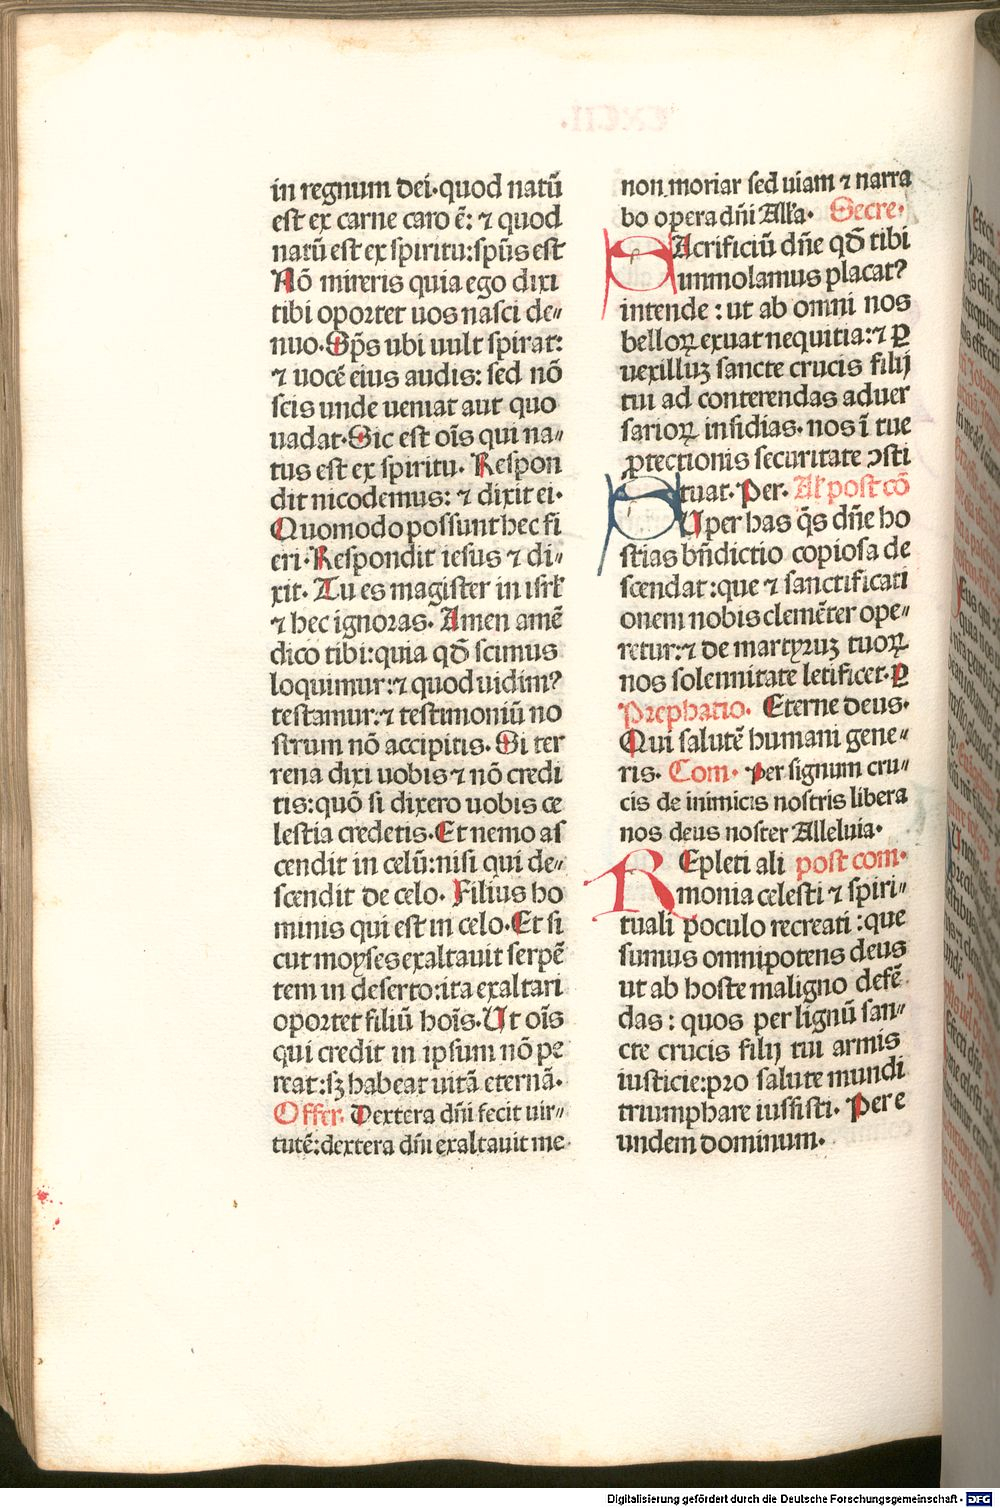 in regnum dei·quod natū
est ex carne caro ē: ⁊ quod
natū est ex spiritu:spūs est
Nō mireris quia ego dixi
tibi oportet uos nasci de⸗
nuo·Spūs ubi uult spirat:
⁊ uocē eius audis: sed nō
scis unde ueniat aut quo
uadat·Sic est oīs qui na⸗
tus est ex spiritu· Respon
dit nicodemus: ⁊ dixit ei·
Quomodo possunt hec fi
eri·Respondit iesus ⁊ di⸗
xit· Tu es magister in isrl̄
⁊ hec ignoras· Amen amē
dico tibi:quia qđ scimus
loquimur:⁊ quod uidimꝰ
testamur:⁊ testimoniū no
strum nō accipitis· Si ter
rena dixi uobis ⁊ nō credi
tis:quō si dixero uobis ce
lestia credetis·Et nemo as
cendit in celū:nisi qui de⸗
scendit de celo· Filius ho
minis qui est in celo·Et si
cut moyses exaltauit serpē
tem in deserto:ita exaltari
oportet filiū hoīs·Ut oīs
qui credit in ipsum nō pe
reat:sꝫ habeat uitā eternā·
Offer· Dextera dn̄i fecit uir⸗
tutē:dextera dn̄i exaltauit me·
non moriar sed uiam ⁊ narra
bo opera dn̄i Alľa· Secre·
SAcrificiū dn̄e qđ tibi
immolamus placatꝰ
intende : ut ab omni nos
belloꝝ exuat nequitia:⁊ ꝑ
uexilluꝫ sancte crucis filij
tui ad conterendas aduer
sarioꝝ insidias· nos ī tue
ꝓtectionis securitate ↄsti
tuat· Per· Al̄ post cō
SUper has q̄s dn̄e ho
stias bn̄dictio copiosa de
scendat :que ⁊ sanctificati
onem nobis clemēter ope⸗
retur:⁊ de martyruꝫ tuoꝝ
nos solennitate letificet· ꝑ
Prephatio· Eterne deus·
Qui salutē humani gene⸗
ris· Com· Per signum cru⸗
cis de inimicis nostris libera
nos deus noster Alleluia·
REpleti ali post com·
monia celesti ⁊ spiri⸗
tuali poculo recreati :que
sumus omnipotens deus
ut ab hoste maligno defē
das : quos per lignū san⸗
cte crucis filij tui armis
iusticie:pro salute mundi
triumphare iussisti· Per e
undem dominum·
Digitalisierung gefördert durch die Deutsche Forschungsgemeinschaft - DFG